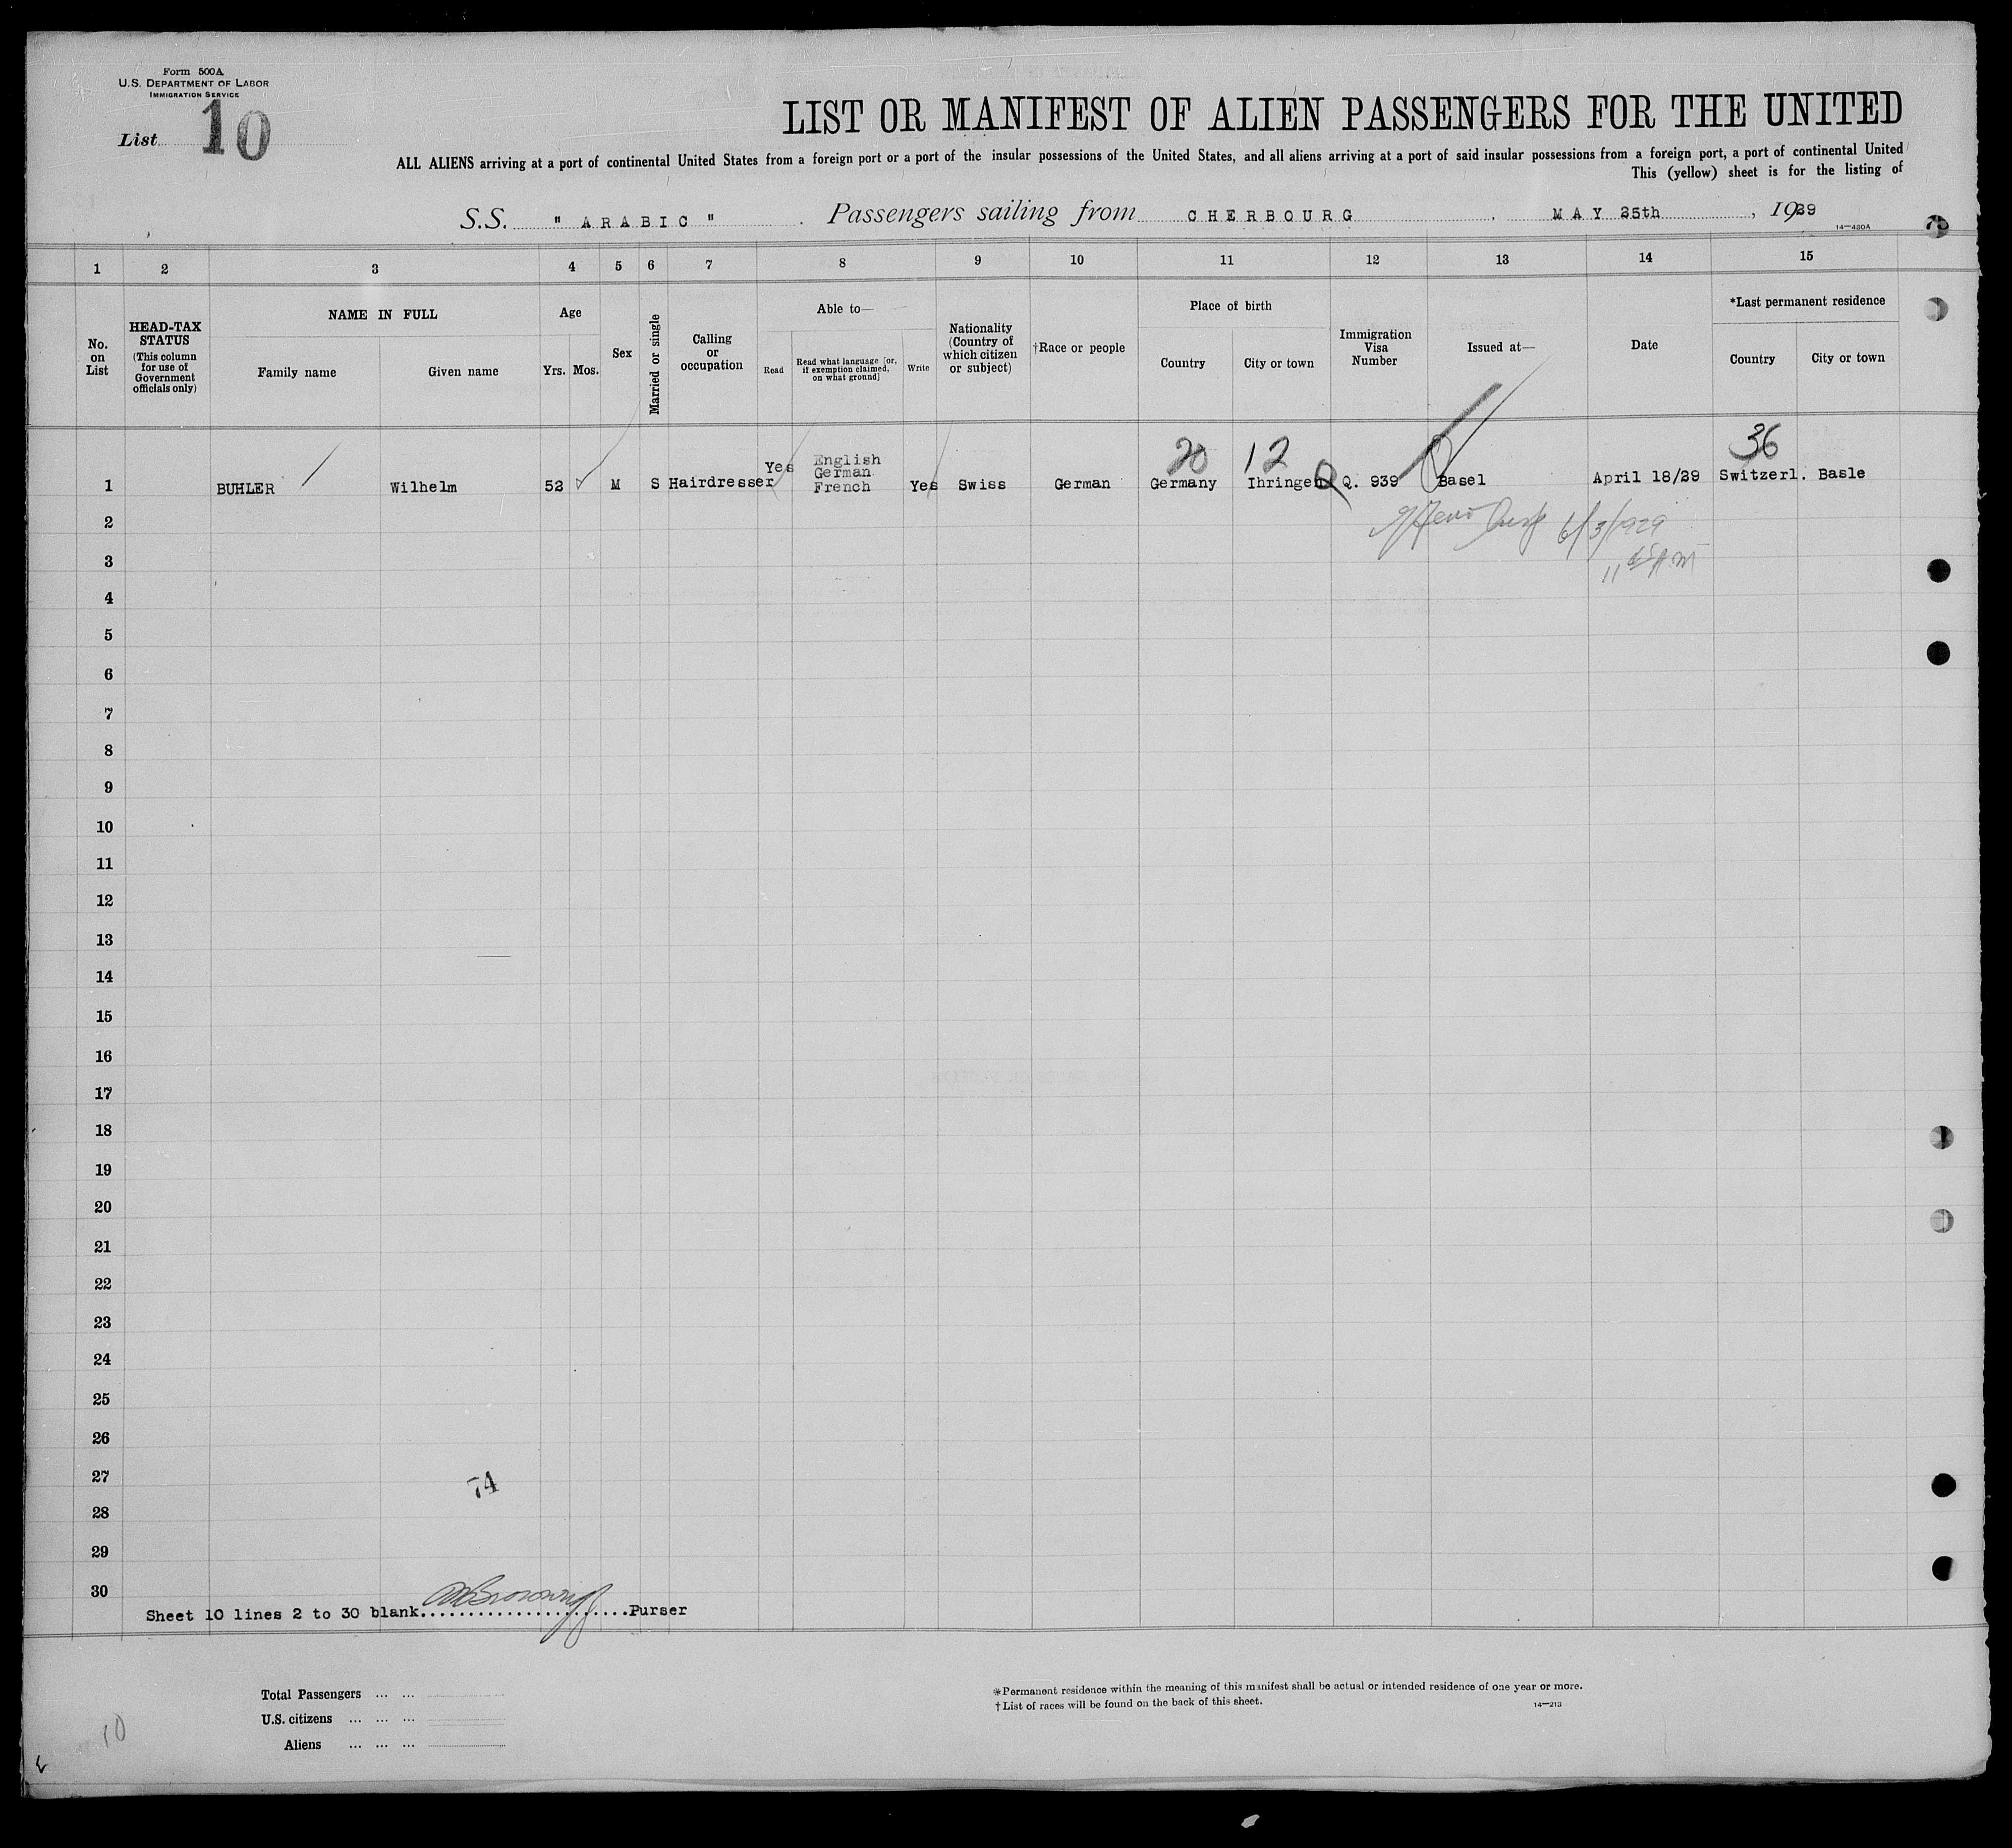 Form 500A
U.S. DEPARTMENT OF LABOR
IMMIGRATION SERVICE
List 10
LIST OR MANIFEST OF ALIEN PASSENGERS FOR THE UNITED
ALL ALIENS arriving at a port of continental United States from a foreign port or a port of the insular possessions of the United States, and all aliens arriving at a port of said insular possessions from a foreign port, a port of continental United
This (yellow) sheet is for the listing of
S.S. " ARABIC " . Passengers sailing from CHERBOURG , MAY 25th , 1929
14—430A
1 2 3 4 5 6 7 8 9 10 11 12 13 14 15
No. on List
HEAD-TAX STATUS
(This column for use of Government officials only)
NAME IN FULL
Family name
Given name
Age
Yrs. Mos.
Sex
Married or single
Calling or occupation
Able to—
Read
Read what language [or, if exemption claimed, on what ground]
Write
Nationality (Country of which citizen or subject)
†Race or people
Place of birth
Country
City or town
Immigration Visa Number
Issued at—
Date
*Last permanent residence
Country
City or town
20 12 36
1 BUHLER Wilhelm 52 M S Hairdresser Yes English German French Yes Swiss German Germany Ihringen Q. 939 Basel April 18/29 Switzerl. Basle
2
6/3/1929
3
11 45 AM
4
5
6
7
8
9
10
11
12
13
14
15
16
17
18
19
20
21
22
23
24
25
26
27
74
28
29
30
Sheet 10 lines 2 to 30 blank.......................Purser
Total Passengers ... ...
U.S. citizens ... ... ...
Aliens ... ... ...
*Permanent residence within the meaning of this manifest shall be actual or intended residence of one year or more.
†List of races will be found on the back of this sheet.
14—213
10